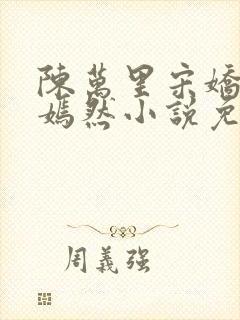 陳萬里宋嬌
嫣然小說免
周義強